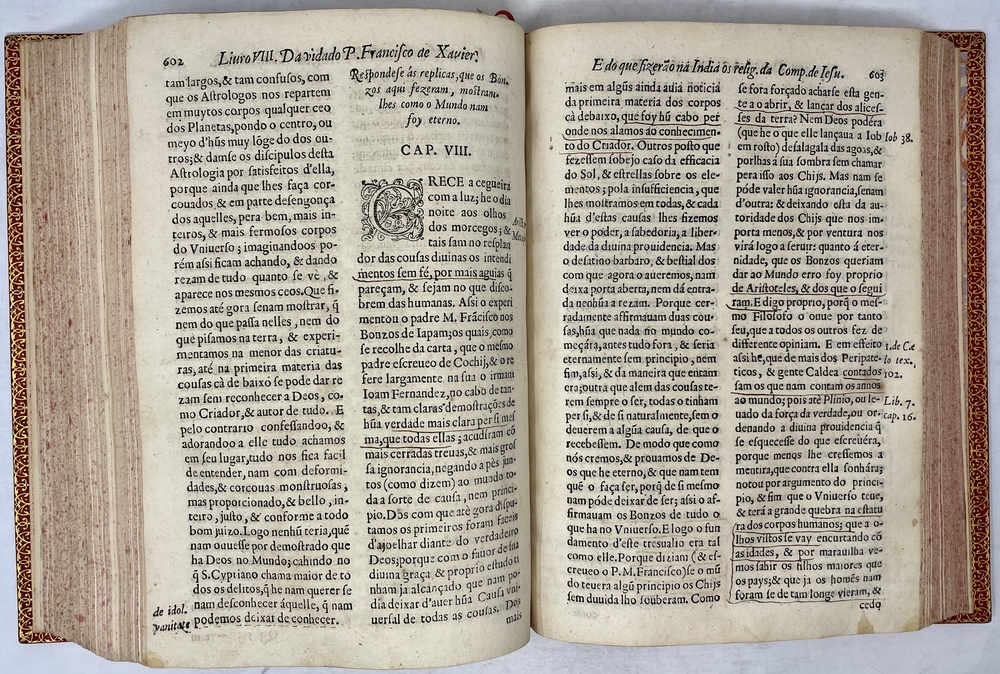 602
Liuro VIII. Da vida do P. Francisco de Xauier.
tam largos, & tam confusos, com
que os Astrologos nos repartem
em muytos corpos qualquer ceo
dos Planetas, pondo o centro, ou
meyo d'hũs muy lõge do dos ou-
tros; & damse os discipulos desta
Astrologia por satisfeitos d'ella,
porque ainda que lhes faça cor-
couados, & em parte desengonça
dos aquelles, pera bem, mais in-
teiros, & mais fermosos corpos
do Vniuerso; imaginandoos po-
rém assi ficam achando, & dando
rezam de tudo quanto se vè, &
aparece nos mesmos ceos. Que fi-
zemos até gora senam mostrar, q̃
nem do que passa nelles, nem do
que pisamos na terra, & experi-
mentamos na menor das criatu-
ras, até na primeira materia das
cousas cà de baixo se pode dar re
zam sem reconhecer a Deos, co-
mo Criador, & autor de tudo. E
pelo contrario confessandoo, &
adorandoo a elle tudo achamos
em seu lugar, tudo nos fica facil
de entender, nam com deformi-
dades, & corcouas monstruosas,
mas proporcionado, & bello, in-
teiro, justo, & conforme a todo
bom juizo. Logo nenhũ teria, quẽ
nam ouuesse por demostrado que
ha Deos no Mundo; cahindo no
q̃ S. Cypriano chama maior de to
dos os delitos, q̃ he nam querer se
nam desconhecer áquelle, q̃ nam
podemos deixar de conhecer.
de idol.
vanitate
Respondese ás replicas, que os Bon-
zos aqui fezeram, mostram-
lhes como o Mundo nam
foy eterno.
CAP. VIII.
CRECE a cegueira
com a luz; he o dia
noite aos olhos
dos morcegos; &
tais sam no resplan
dor das cousas diuinas os intendi
mentos sem fé, por mais aguias q̃
pareçam, & sejam no que disco-
brem das humanas. Assi o experi
mentou o padre M. Frãcisco nos
Bonzos de Iapam; os quais, como
se recolhe da carta, que o mesmo
padre escreueo de Cochij, & o re
fere largamente na sua o irmam
Ioam Fernandez, no cabo de tan-
tas, & tam claras demostrações de
hũa verdade mais clara per si mes
ma, que todas ellas; acudiram cõ
mais cerradas treuas, & mais gros
sa ignorancia, negando a pès jun-
tos (como dizem) ao mundo to-
da a sorte de causa, nem princi-
pio. Dos com que até gora dispu-
tamos os primeiros foram faceis
d'ajoelhar diante do verdadeiro
Deos; porque com o fauor de sua
diuina graça, & proprio estudo ti
nham ja alcançado que nam po-
dia deixar d'auer hũa Causa vni-
uersal de todas as cousas. Dos
mais
E do que fizerão na India os relig. da Comp. de Iesu.
603
mais em algũs ainda auia noticia
da primeira materia dos corpos
cà debaixo, que foy hũ cabo per
onde nos alamos ao conhecimen-
to do Criador. Outros posto que
fezessem sobejo caso da efficacia
do Sol, & estrellas sobre os ele-
mentos; pola insufficiencia, que
lhes mostramos em todas, & cada
hũa d'estas causas lhes fizemos
ver o poder, a sabedoria, a liber-
dade da diuina prouidencia. Mas
o desatino barbaro, & bestial dos
com que agora o aueremos, nam
deixa porta aberta, nem dá entra-
da nenhũa a rezam. Porque cer-
radamente affirmauam duas cou-
sas, hũa que nada no mundo co-
meçára, antes tudo fora, & seria
eternamente sem principio, nem
fim, assi, & da maneira que entam
era; outra que alem das cousas te-
rem sempre o ser, todas o tinham
per si, & de si naturalmente, sem o
deuerem a algũa causa, de que o
recebessem. De modo que como
nós cremos, & prouamos de De-
os que he eterno, & que nam tem
quẽ o faça ser, porq̃ de si mesmo
nam póde deixar de ser; assi o af-
firmauam os Bonzos de tudo o
que ha no Vniuerso. E logo o fun
damento d'este tresualio era tal
como elle. Porque diziam (& es-
creueo o P. M. Francisco) se o mũ
do teuera algũ principio os Chijs
sem duuida lho souberam. Como
se fora forçado acharse esta gen-
te a o abrir, & lançar dos alices-
ses da terra? Nem Deos podéra
(que he o que elle lançaua a Iob
em rosto) desalagala das agoas, &
porlhas á sua sombra sem chamar
pera isso aos Chijs. Mas nam se
póde valer hũa ignorancia, senam
d'outra: & deixando esta da au-
toridade dos Chijs que nos im-
porta menos, & por ventura nos
virá logo a seruir; quanto á eter-
nidade, que os Bonzos queriam
dar ao Mundo erro foy proprio
de Aristoteles, & dos que o segui
ram. E digo proprio, porq̃ o mes-
mo Filosofo o ouue por tanto
seu, que a todos os outros fez de
differente opiniam. E em effeito
assi he, que de mais dos Peripate-
ticos, & gente Caldea contados
sam os que nam contam os annos
ao mundo; pois até Plinio, ou le-
uado da força da verdade, ou or-
denando a diuina prouidencia q̃
se esquecesse do que escreuéra,
porque menos lhe cressemos a
mentira, que contra ella sonhára;
notou por argumento do princi-
pio, & fim que o Vniuerso teue,
& terá a grande quebra na estatu
ra dos corpos humanos; que a o-
lhos vistos se vay encurtando cõ
as idades, & por marauilha ve-
mos sahir os filhos maiores que
os pays; & que ja os homẽs nam
foram se de tam longe vieram, &
cedo
Iob 38.
1. de Cæ
lo tex.
102.
Lib. 7.
cap. 16.